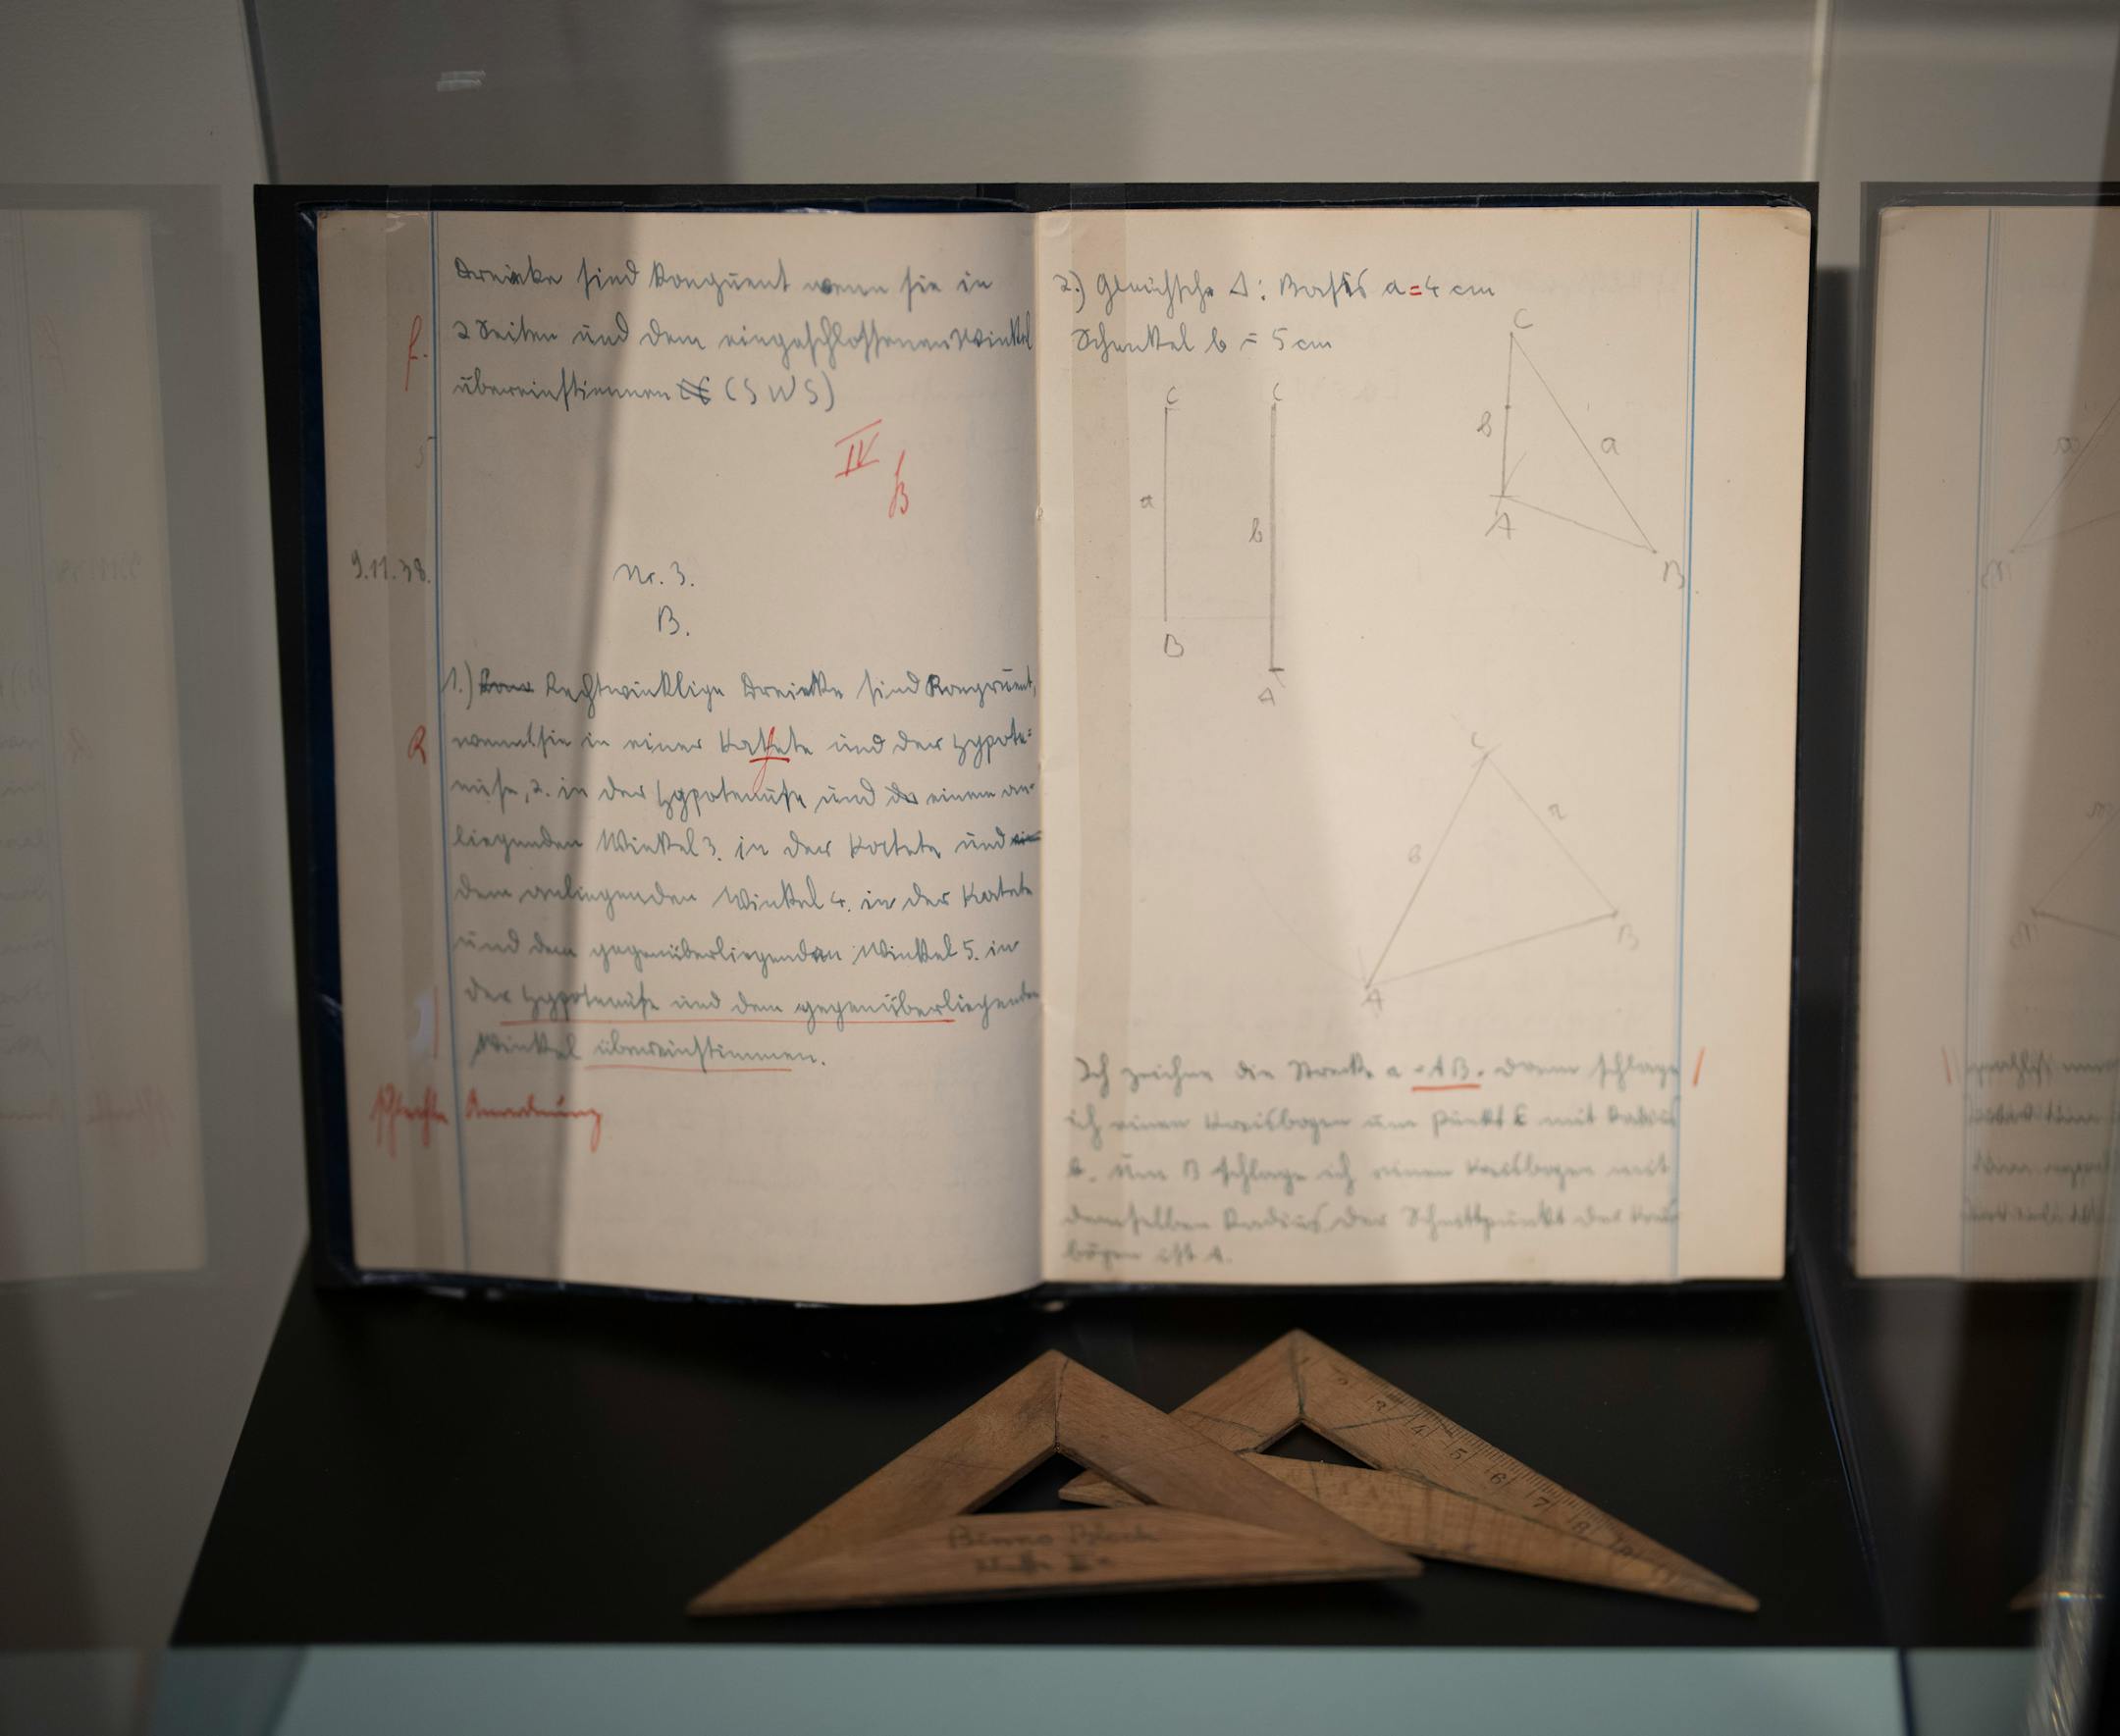 Dreieke sind kongruent wenn sie in
2 Seiten und dem eingeschlossenen Winkel
f.
übereinstimmen (S W S)
IV
B
9.11.38.
Nr. 3.
B.
1.) Rechtwinklige Dreieke sind kongruent,
R
wenn sie in einer Kathete und der Hypote=
nuse, 2. in der Hypotenuse und einem an-
liegenden Winkel 3. in der Katete und
dem anliegenden Winkel 4. in der Katete
und dem gegenüberliegenden Winkel 5. in
der Hypotenuse und dem gegenüberliegenden
Winkel übereinstimmen.
Schlechte Anordnung
2.) Gleichsch. Δ: Basis a = 4 cm
Schenkel b = 5 cm
C
C
C
b
a
a
b
A
B
B
A
C
a
b
B
A
Ich zeichne die Strecke a = AB. Dann schlage
ich einen Kreisbogen um Punkt C mit Radius
b. Um B schlage ich einen Kreisbogen mit
demselben Radius der Schnittpunkt der Kreis
bögen ist A.
2
3
4
5
6
7
8